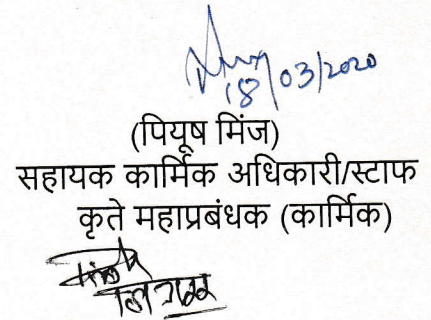 18/03/2020
(पियूष मिंज)
सहायक कार्मिक अधिकारी/स्टाफ
कृते महाप्रबंधक (कार्मिक)